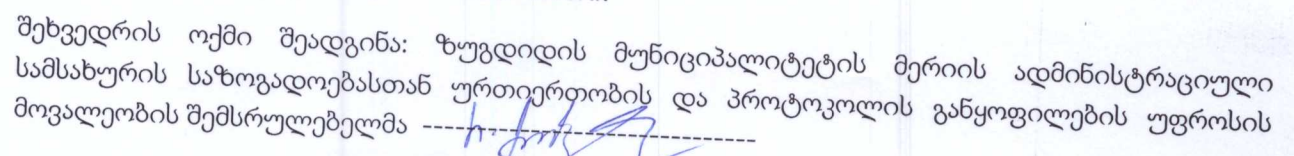 შეხვედრის ოქმი შეადგინა: ზუგდიდის მუნიციპალიტეტის მერიის ადმინისტრაციული
სამსახურის საზოგადოებასთან ურთიერთობის და პროტოკოლის განყოფილების უფროსის
მოვალეობის შემსრულებელმა -----------------------------------